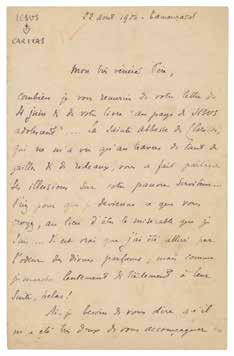 JESUS
CARITAS
22 août 1904 - Tamanrasset
Mon très vénéré Père,
Combien je vous remercie de votre lettre du
4 juin & de votre livre "au pays de JESUS
adolescent".... La Sainte Abbesse de Clarisses,
qui ne m'a vu qu'au travers de tant de
grilles & de rideaux, vous a fait partager
ses illusions sur votre pauvre serviteur...
Priez pour que je devienne ce que vous
croyez, au lieu d'être le misérable que je
suis... Il est vrai que j'ai été attiré par
l'odeur des divins parfums, mais comme
je marche lentement & tristement à leur
suite, hélas!
Ai-je besoin de vous dire qu'il
m'a été très doux de vous accompagner